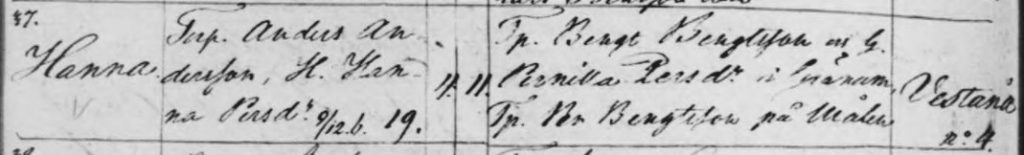 37.
Hanna
Torp. Anders An-
dersson, H. Han-
na Persdr. 9/12. b. 19.
11. 11.
Tp. Bengt Bengtsson och h.
Pernilla Persdr i Gränum,
Tp. Per Bengtsson på
Vestanå
no. 4.